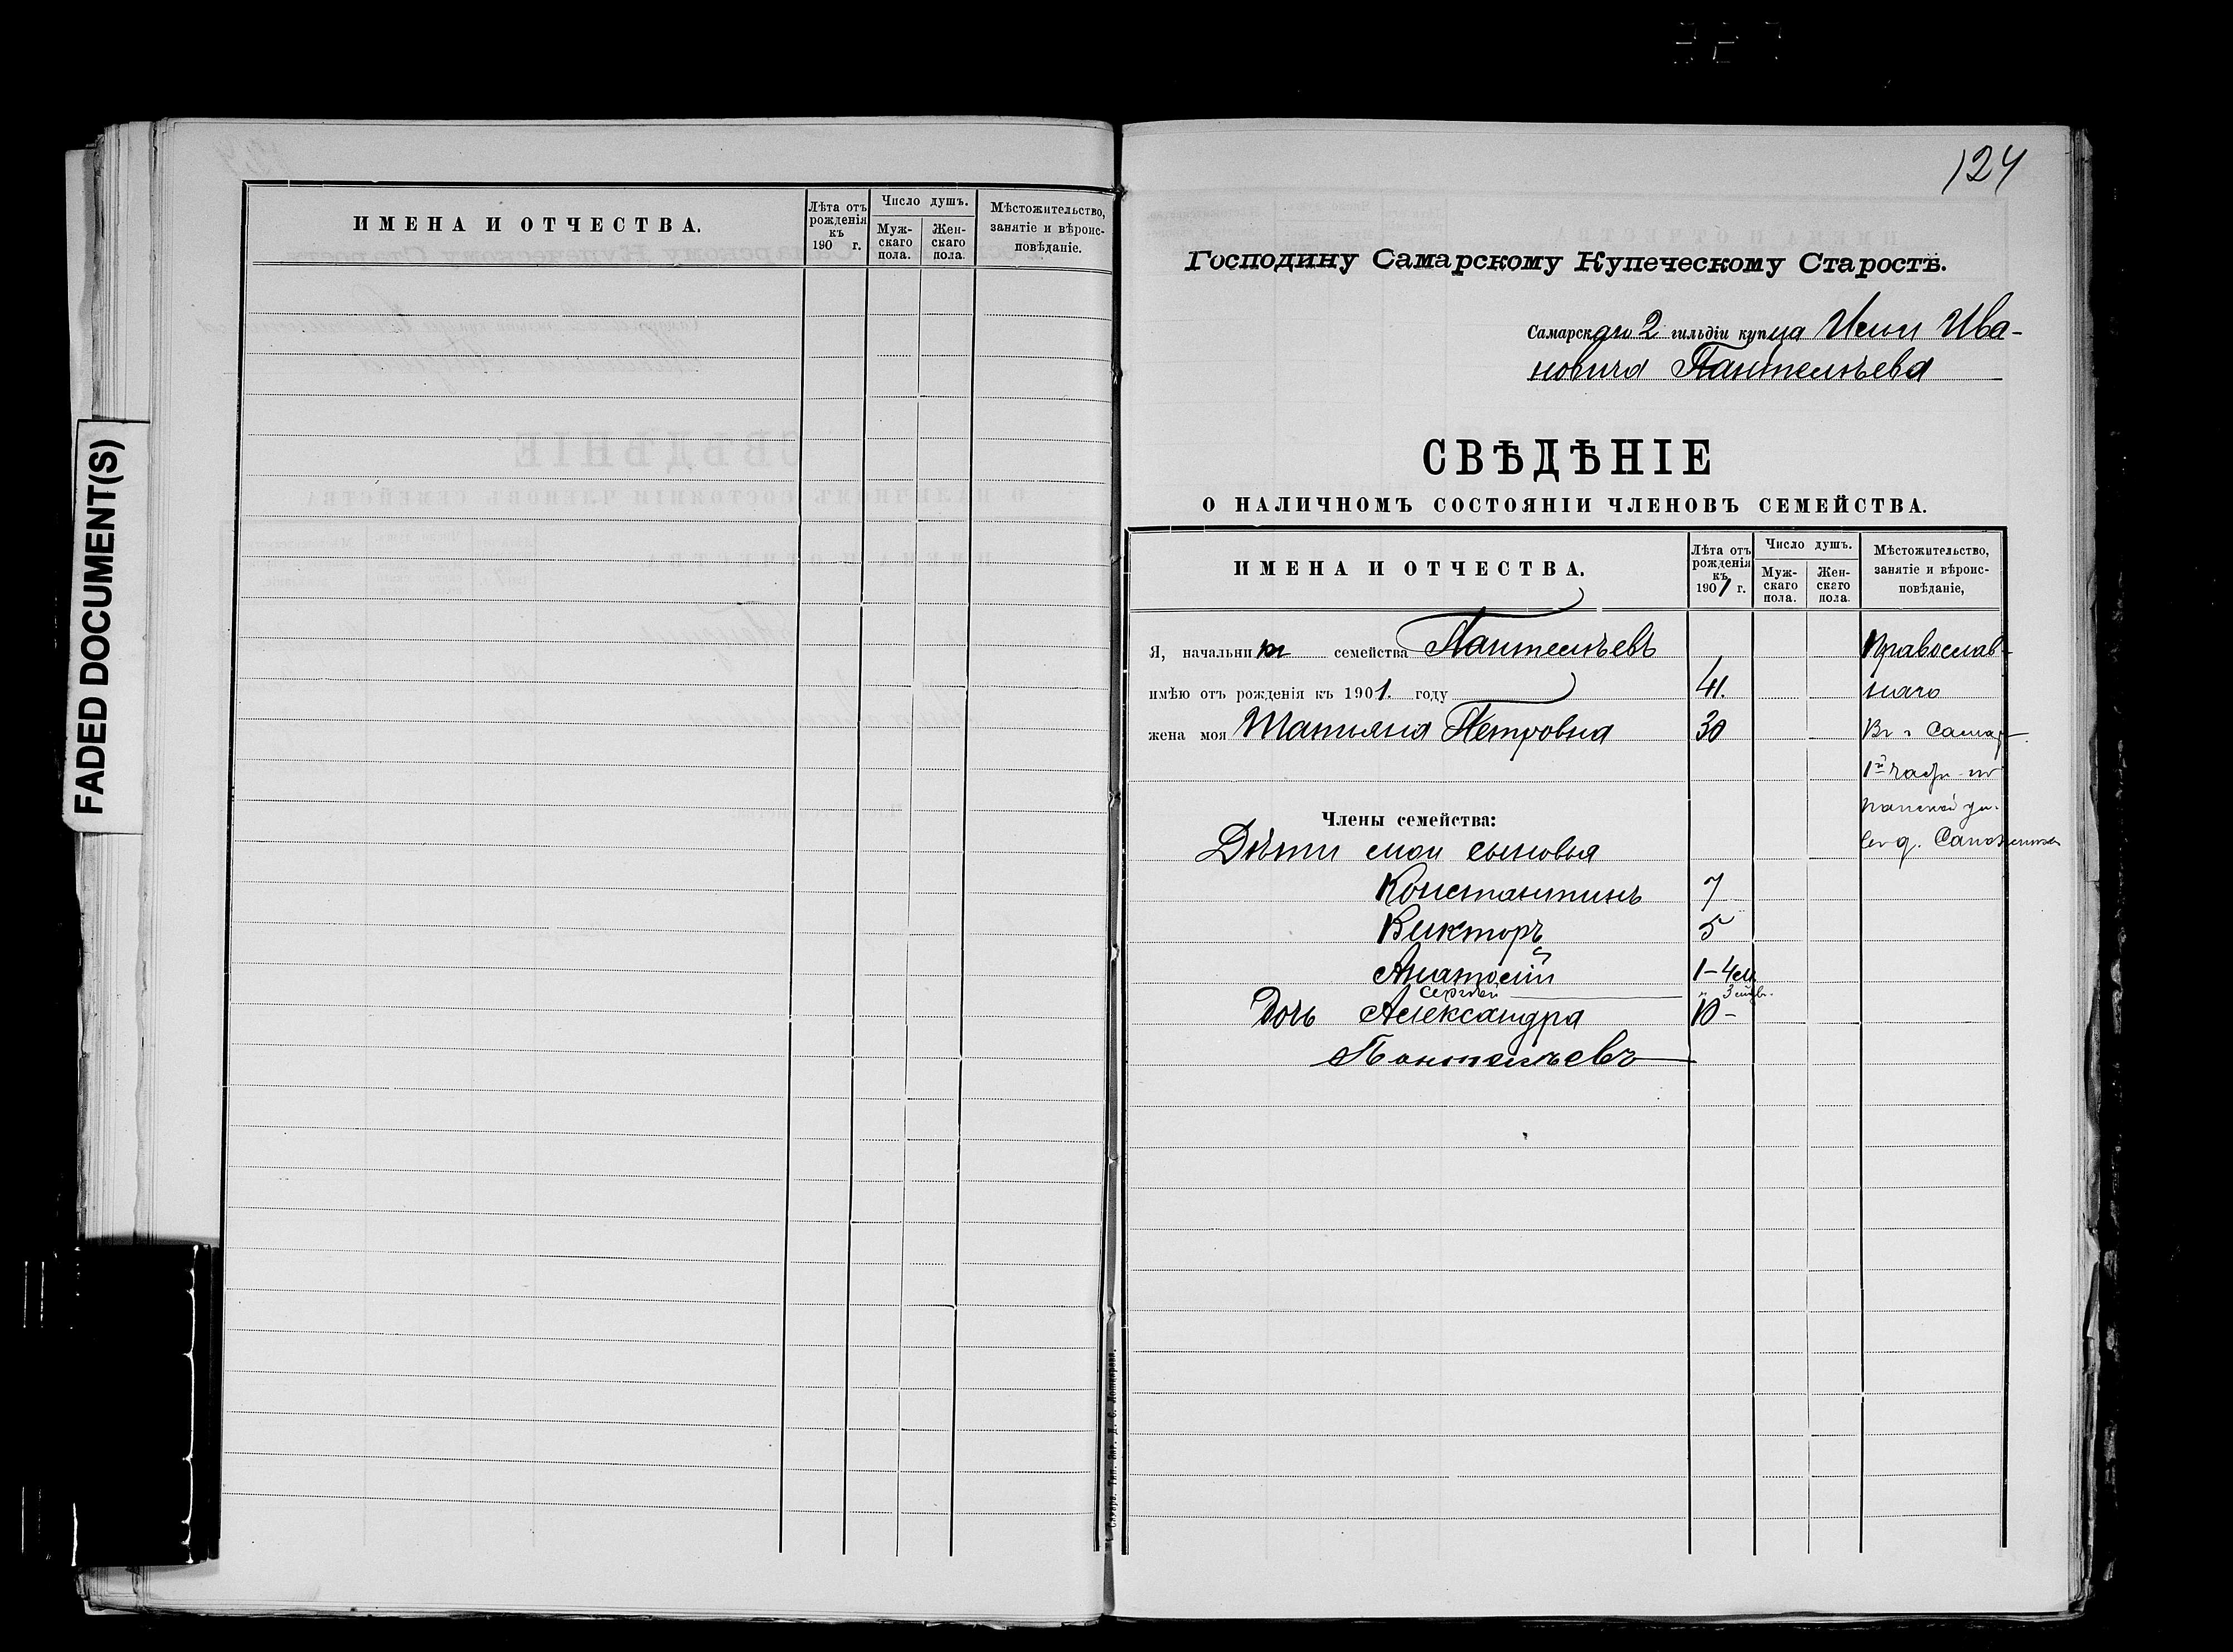 FADED DOCUMENT(S)
ИМЕНА И ОТЧЕСТВА.
Лѣта отъ рожденія къ 190 г.
Число душъ.
Мужскаго пола.
Женскаго пола.
Мѣстожительство, занятіе и вѣроисповѣданіе.
124
Господину Самарскому Купеческому Старостѣ.
Самарскаго 2 гильдіи купца Ильи Ива-
новича Пантелѣева
СВѢДѢНІЕ
О НАЛИЧНОМЪ СОСТОЯНІИ ЧЛЕНОВЪ СЕМЕЙСТВА.
ИМЕНА И ОТЧЕСТВА.
Лѣта отъ рожденія къ 1901 г.
Число душъ.
Мужскаго пола.
Женскаго пола.
Мѣстожительство, занятіе и вѣроисповѣданіе,
Я, начальникъ семейства Пантелѣевъ Православ-
имѣю отъ рожденія къ 1901. году 41. наго
жена моя Татьяна Петровна 30 Въ г Самар
1й части по
Члены семейства:
Дѣти мои сыновья
Константинъ 7
Викторъ 5
Анатолій 1-4 м
Сергѣй
Дочь Александра 10 -
Пантелѣевъ
Самара. Тип. Д. С.